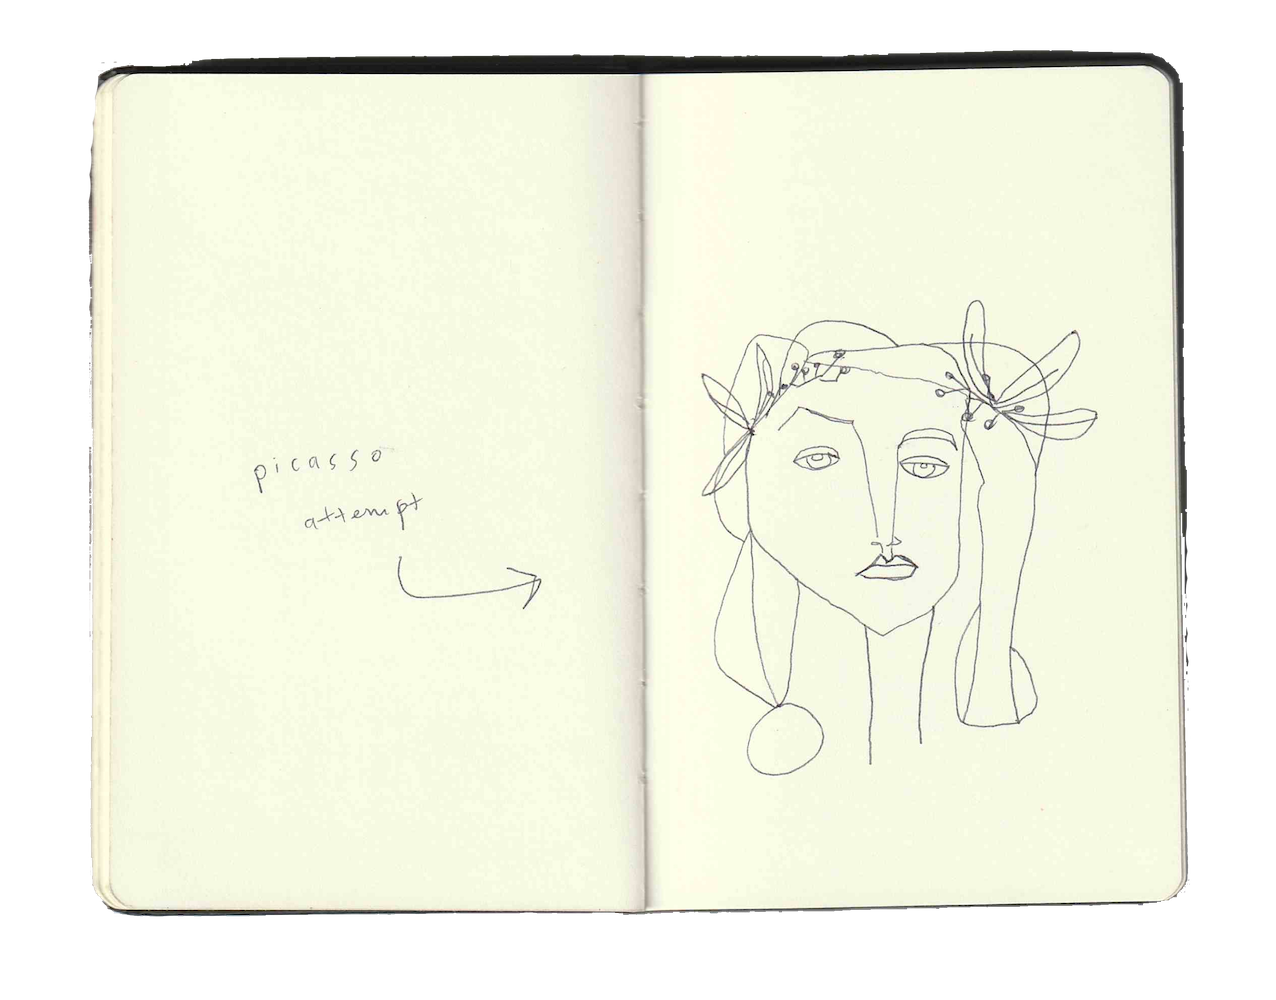 picasso
attempt